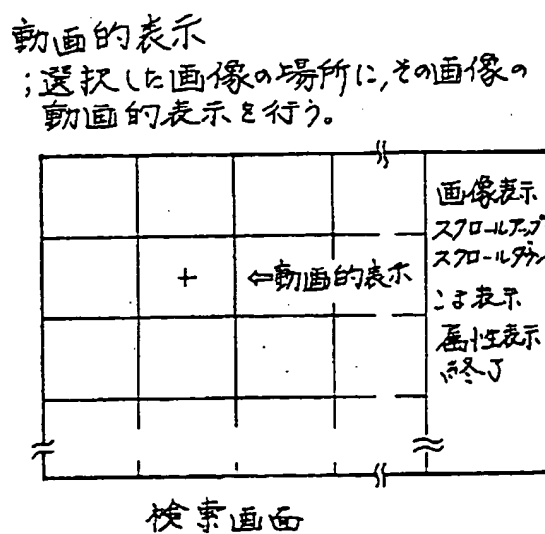 動画的表示
;選択した画像の場所に,その画像の
動画的表示を行う。
画像表示
スクロールアップ
スクロールダウン
+
⇦動画的表示
こま表示
属性表示
終了
検索画面